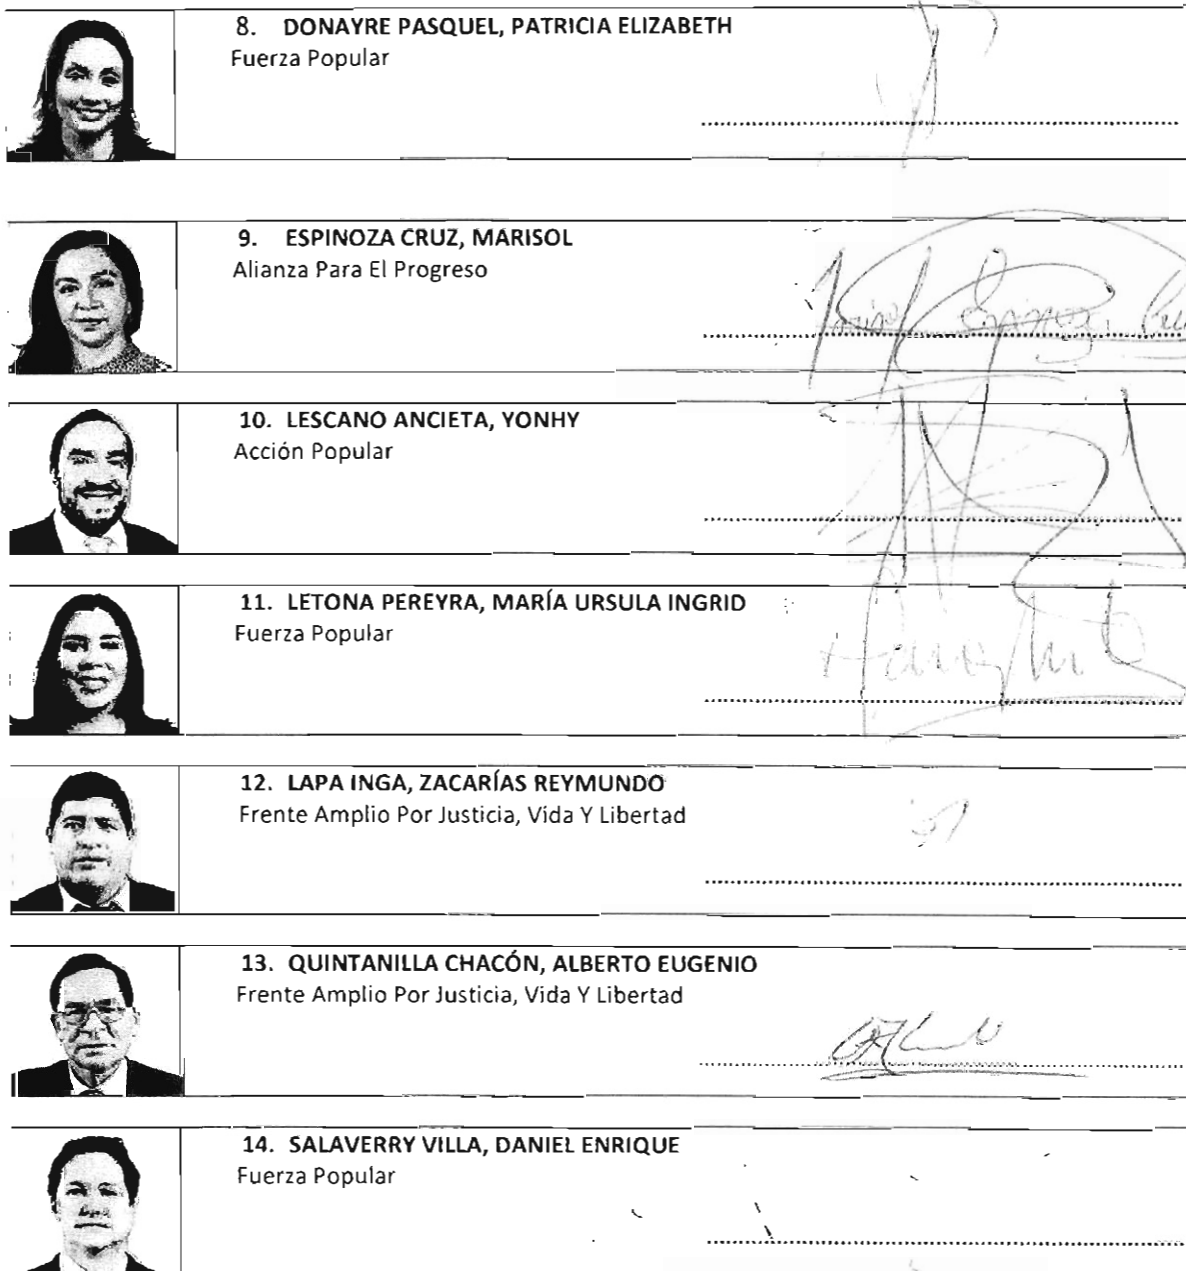 8. DONAYRE PASQUEL, PATRICIA ELIZABETH
Fuerza Popular
9. ESPINOZA CRUZ, MARISOL
Alianza Para El Progreso
Marisol Espinoza Cru
10. LESCANO ANCIETA, YONHY
Acción Popular
11. LETONA PEREYRA, MARÍA URSULA INGRID
Fuerza Popular
12. LAPA INGA, ZACARÍAS REYMUNDO
Frente Amplio Por Justicia, Vida Y Libertad
13. QUINTANILLA CHACÓN, ALBERTO EUGENIO
Frente Amplio Por Justicia, Vida Y Libertad
14. SALAVERRY VILLA, DANIEL ENRIQUE
Fuerza Popular